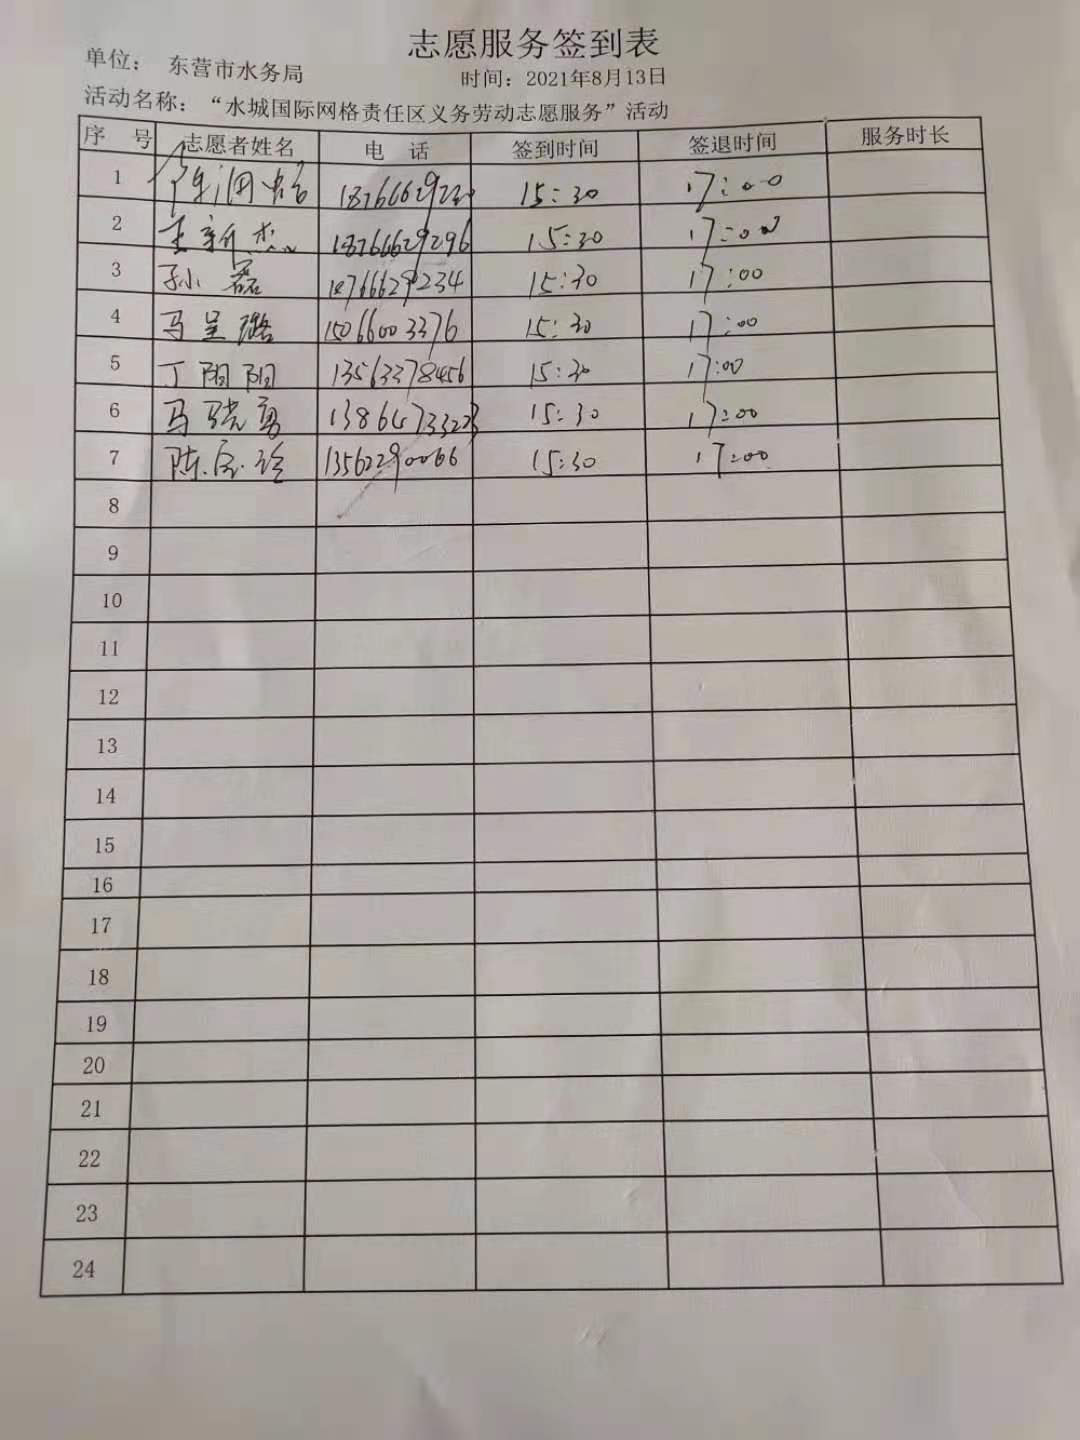 志愿服务签到表
单位： 东营市水务局 时间：2021年8月13日
活动名称：“水城国际网格责任区义务劳动志愿服务”活动
序 号 志愿者姓名 电 话 签到时间 签退时间 服务时长
1 陈润 15:30 17:00
2 王新杰 18766629296 15:30 17:00
3 孙磊 18766629234 15:30 17:00
4 马呈璐 15066003376 15:30 17:00
5 丁阳阳 13563378456 15:30 17:00
6 马晓勇 15:30 17:00
7 陈 13562290066 15:30 17:00
8
9
10
11
12
13
14
15
16
17
18
19
20
21
22
23
24